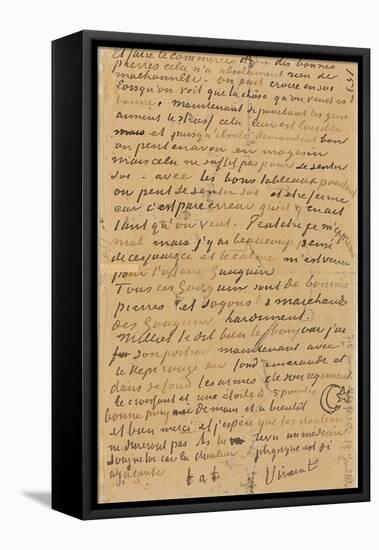 Et faire le commerce des bonnes
pierres cela n'a absolument rien de
malhonnête. on peut croire en soi
lorsqu'on voit que la chose qu'on vend est
bonne. maintenant pourtant les gens
aiment le strass cela leur est loisible
mais et puisqu'ils le demandent bon
on peut en avoir en magasin
mais cela ne suffit pas pour se sentir
soi – avec les bons tableaux pourtant
on peut se sentir soi et etre ferme
car c'est pas erreur qu'il y en ait
tant qu'on veut. Peut etre je m'exprime
mal mais j'y ai beaucoup pensé
de ces jours ci et le calme m'est venu
pour l'affaire Gauguin
Tous ces Gauguin sont de bonnes
pierres et soyons marchands
des Gauguin hardiment.
Milliet te dit bien le bonjour j'ai
son portrait maintenant avec
le kepi rouge sur fond emeraude et
dans ce fond les armes de son regiment
le croissant et une étoile à 5 pointes
bonne poignée de main et à bientôt
et bien merci et j'espère que les douleurs
ne dureront pas As tu revu un médecin
soigne toi car la douleur physique est si
agaçante
t. à t. Vincent